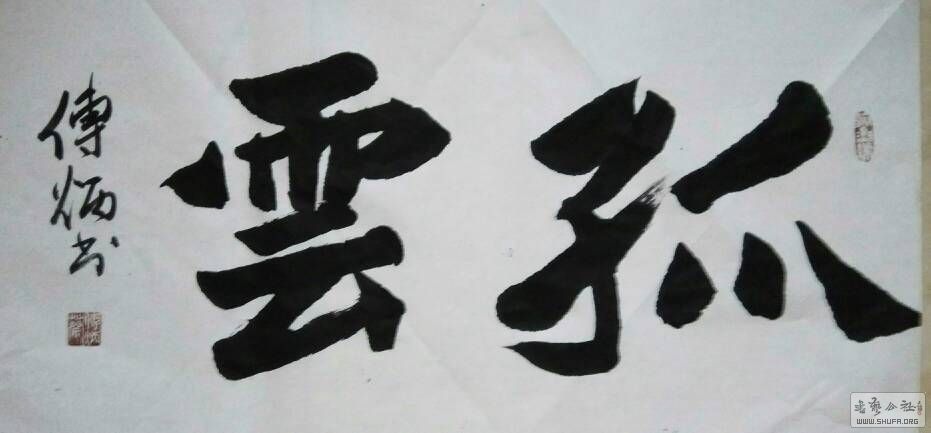 孤雲
傅炳书
书艺公社
WWW.SHUFA.ORG